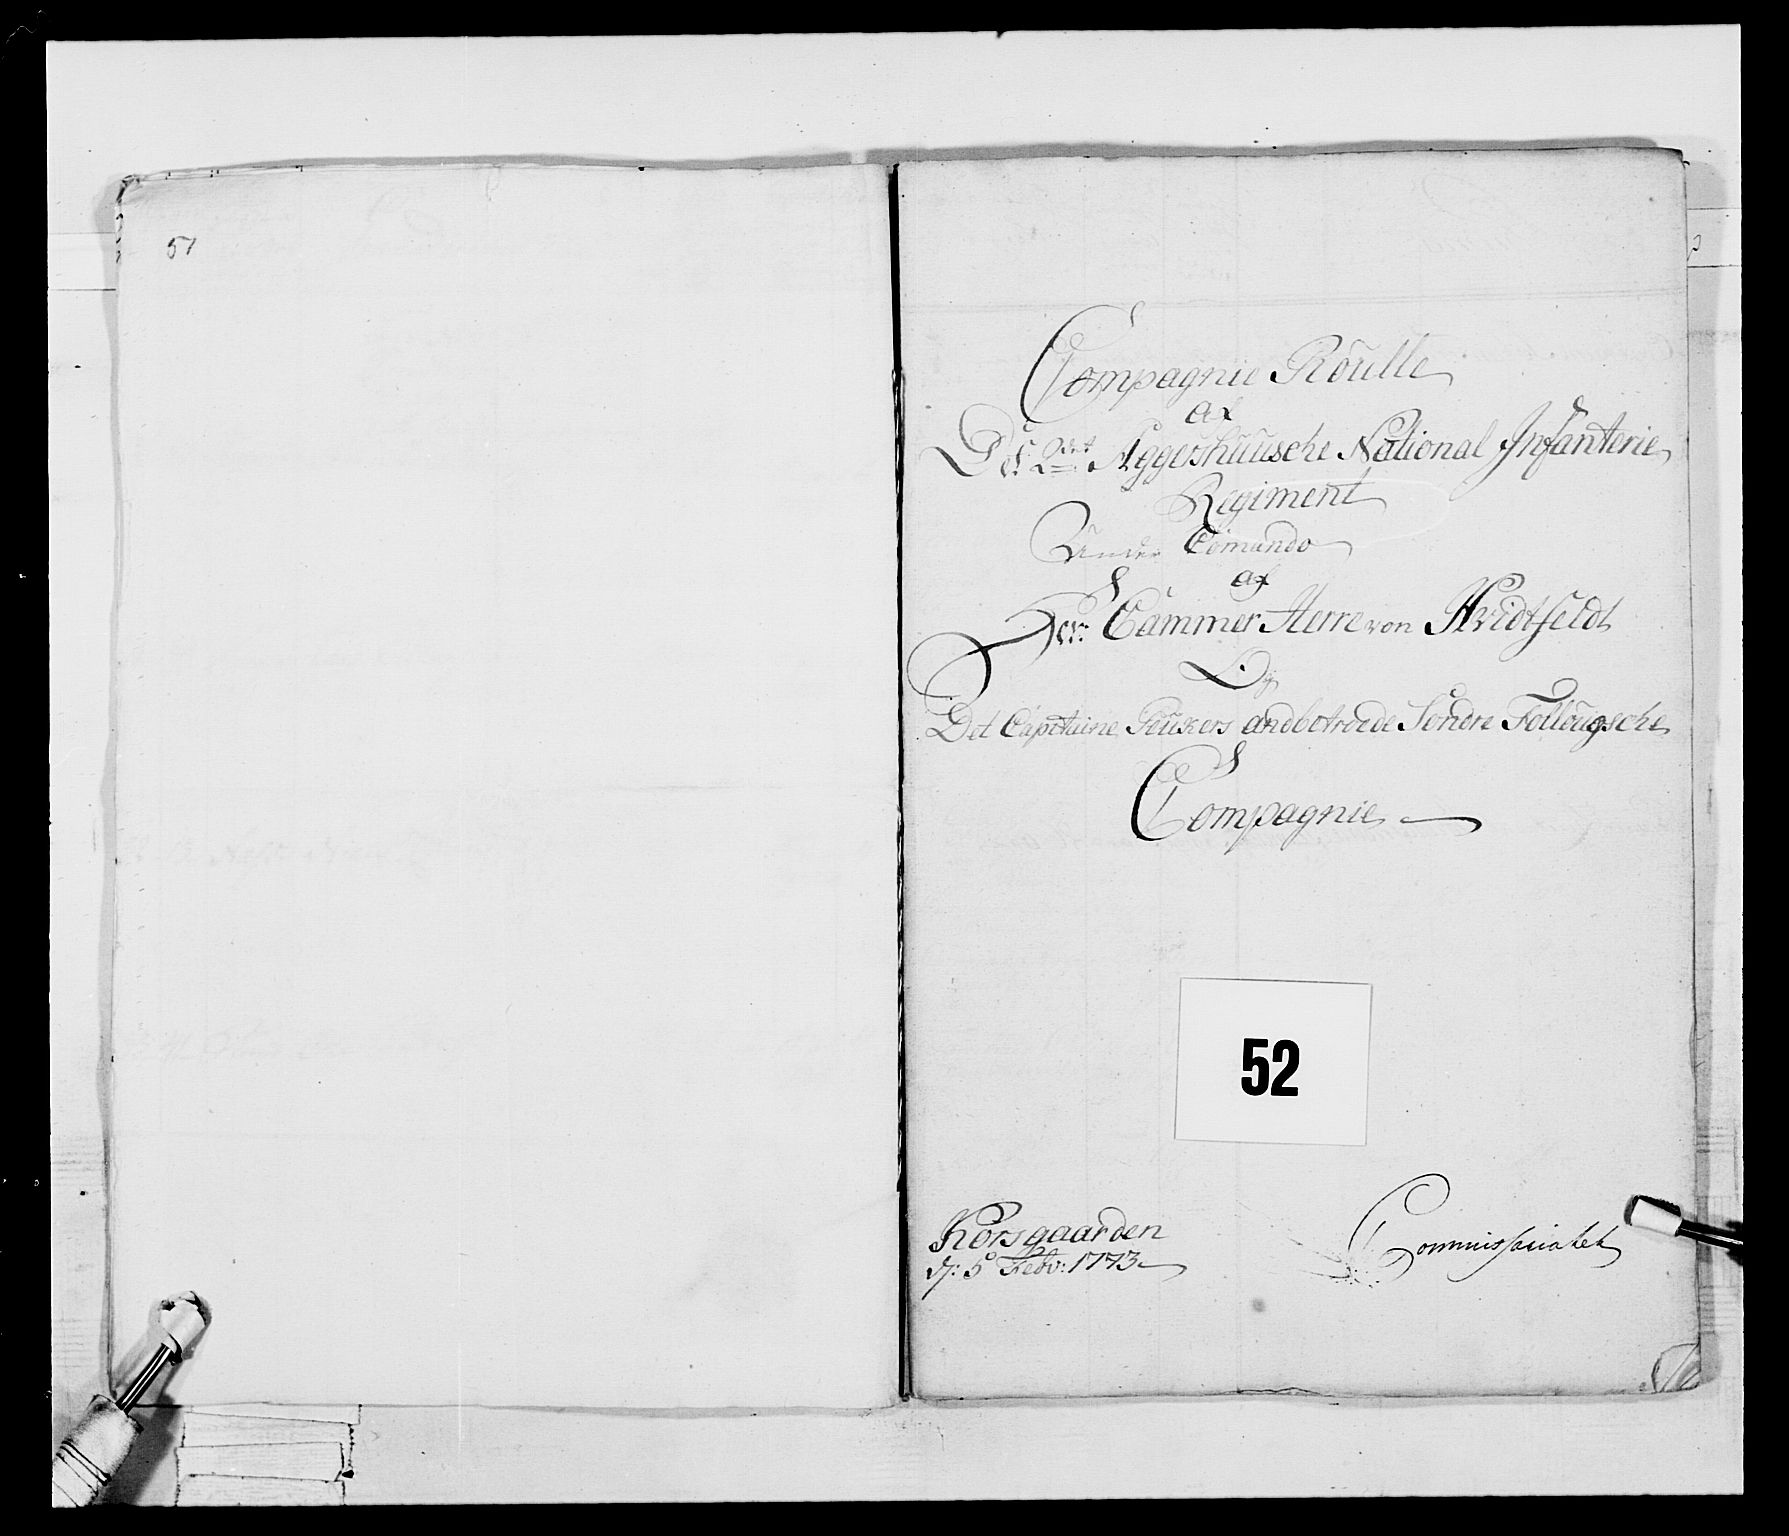 51
Compagnie Roulle
af
Det 2det Aggershuusche National Infanterie
Regiment
Under Comando
af
Hr: Cammer Herre von Hvidtfeldt
Og
Det Capitaine Peukers andbetroede Söndre Follougsche
Compagnie
52
Korsgaarden
d: 5 Febr: 1773
Commissariatet